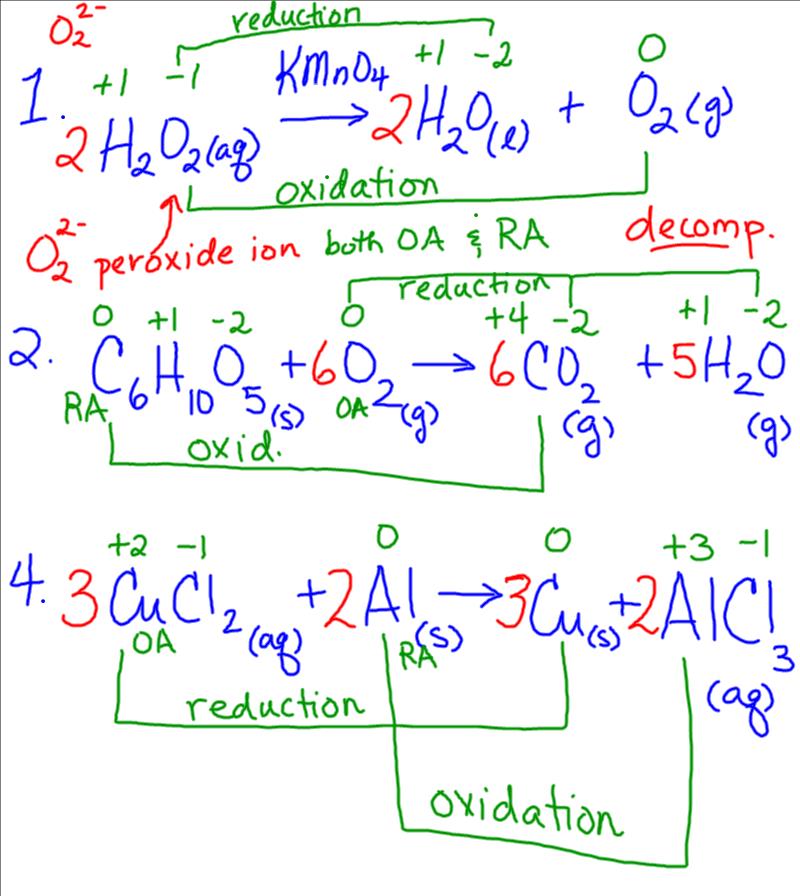 O₂²⁻ reduction
+1 -1 KMnO₄ +1 -2 0
1. 2H₂O₂(aq) → 2H₂O(l) + O₂(g)
oxidation
O₂²⁻ peroxide ion both OA & RA decomp.
reduction
0 +1 -2 0 +4 -2 +1 -2
2. C₆H₁₀O₅(s) + 6O₂(g) → 6CO₂(g) + 5H₂O(g)
RA OA
oxid.
+2 -1 0 0 +3 -1
4. 3CuCl₂(aq) + 2Al(s) → 3Cu(s) + 2AlCl₃(aq)
OA RA
reduction
oxidation